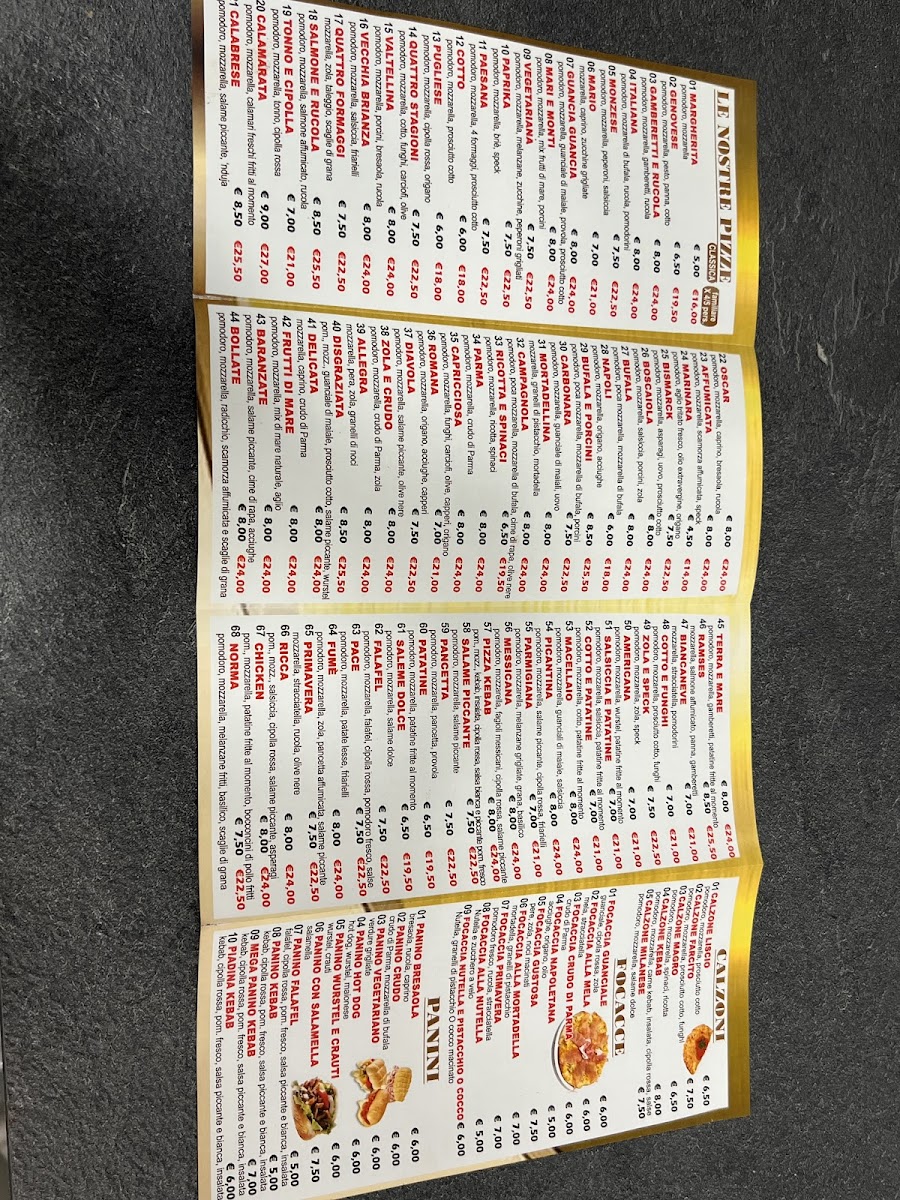 LE NOSTRE PIZZE
CLASSICA
familiare X 4/5 pers.
01 MARGHERITA € 5,00 €16,00
pomodoro, mozzarella
02 GENOVESE € 6,50 €19,50
pomodoro, mozzarella, pesto, panna, cotto
03 GAMBERETTI E RUCOLA € 8,00 €24,00
pomodoro, mozzarella, gamberetti, rucola
04 ITALIANA € 8,00 €24,00
pomodoro, mozzarella di bufala, rucola, pomodorini
05 MONZESE € 7,50 €22,50
pomodoro, mozzarella, peperoni, salsiccia
06 MARIO € 7,00 €21,00
mozzarella, caprino, zucchine grigliate
07 GUANCIA GUANCIA € 8,00 €24,00
pomodoro, mozzarella, guanciale di maiale, provola, prosciutto cotto
08 MARI E MONTI € 8,00 €24,00
pomodoro, mozzarella, mix frutti di mare, porcini
09 VEGETARIANA € 7,50 €22,50
pomodoro, mozzarella, melanzane, zucchine, peperoni grigliati
10 PAPRIKA € 7,50 €22,50
pomodoro, mozzarella, briè, speck
11 PAESANA € 7,50 €22,50
pomodoro, mozzarella, 4 formaggi, prosciutto cotto
12 COTTO € 6,00 €18,00
pomodoro, mozzarella, prosciutto cotto
13 PUGLIESE € 6,00 €18,00
pomodoro, mozzarella, cipolla rossa, origano
14 QUATTRO STAGIONI € 7,50 €22,50
pomodoro, mozzarella, cotto, funghi, carciofi, olive
15 VALTELLINA € 8,00 €24,00
pomodoro, mozzarella, porcini, bresaola, rucola
16 VECCHIA BRIANZA € 8,00 €24,00
pomodoro, mozzarella, salsiccia, friarielli
17 QUATTRO FORMAGGI € 7,50 €22,50
mozzarella, zola, taleggio, scaglie di grana
18 SALMONE E RUCOLA € 8,50 €25,50
pomodoro, mozzarella, salmone affumicato, rucola
19 TONNO E CIPOLLA € 7,00 €21,00
pomodoro, mozzarella, tonno, cipolla rossa
20 CALAMARATA € 9,00 €27,00
pomodoro, mozzarella, calamari freschi fritti al momento
1 CALABRESE € 8,50 €25,50
pomodoro, mozzarella, salame piccante, 'nduja
22 OSCAR € 8,00 €24,00
pomodoro, mozzarella, caprino, bresaola, rucola
23 AFFUMICATA € 8,00 €24,00
pomodoro, mozzarella, scamorza affumicata, speck
24 MARINARA € 4,50 €14,00
pomodoro, aglio tritato fresco, olio extravergine, origano
25 BISMARCK € 7,50 €22,50
pomodoro, mozzarella, asparagi, uovo, prosciutto cotto
26 BOSCAIOLA € 8,00 €24,00
pomodoro, mozzarella, salsiccia, porcini, zola
27 BUFALA € 8,00 €24,00
pomodoro, poca mozzarella, mozzarella di bufala
28 NAPOLI € 6,00 €18,00
pomodoro, mozzarella, origano, acciughe
29 BUFALA E PORCINI € 8,50 €25,50
pomodoro, poca mozzarella, mozzarella di bufala, porcini
30 CARBONARA € 7,50 €22,50
pomodoro, mozzarella, guanciale di maiali, uovo
31 MORTADELLINA € 8,00 €24,00
mozzarella, granelli di pistacchio, mortadella
32 CAMPAGNOLA € 8,00 €24,00
pomodoro, poca mozzarella, mozzarella di bufala, cime di rapa, olive nere
33 RICOTTA E SPINACI € 6,50 €19,50
pomodoro, mozzarella, ricotta, spinaci
34 PARMA € 8,00 €24,00
pomodoro, mozzarella, crudo di Parma
35 CAPRICCIOSA € 8,00 €24,00
pomodoro, mozzarella, funghi, carciofi, olive, capperi, origano
36 ROMANA € 7,00 €21,00
pomodoro, mozzarella, origano, acciughe, capperi
37 DIAVOLA € 7,50 €22,50
pomodoro, mozzarella, salame piccante, olive nere
38 ZOLA E CRUDO € 8,00 €24,00
pomodoro, mozzarella, crudo di Parma, zola
39 ALLEGRA € 8,00 €24,00
mozzarella, pera, zola, granelli di noci
40 DISGRAZIATA € 8,50 €25,50
pom., mozz., guanciale di maiale, prosciutto cotto, salame piccante, wurstel
41 DELICATA € 8,00 €24,00
mozzarella, caprino, crudo di Parma
42 FRUTTI DI MARE € 8,00 €24,00
pomodoro, mozzarella, mix di mare naturale, aglio
43 BARANZATE € 8,00 €24,00
pomodoro, mozzarella, salame piccante, cime di rapa, acciughe
44 BOLLATE € 8,00 €24,00
pomodoro, mozzarella, radicchio, scamorza affumicata e scaglie di grana
45 TERRA E MARE € 8,00 €24,00
pomodoro, mozzarella, gamberetti, patatine fritte al momento
46 RAMSES € 8,50 €25,50
mozzarella, salmone affumicato, panna, gamberetti
47 BIANCANEVE € 7,00 €21,00
mozzarella, stracciatella, pomodorini
48 COTTO E FUNGHI € 7,50 €22,50
pomodoro, mozzarella, prosciutto cotto, funghi
49 ZOLA E SPECK € 7,00 €21,00
pomodoro, mozzarella, zola, speck
50 AMERICANA € 7,00 €21,00
pomodoro, mozzarella, wurstel, patatine fritte al momento
51 SALSICCIA E PATATINE € 7,00 €21,00
pomodoro, mozzarella, salsiccia, patatine fritte al momento
52 COTTO E PATATINE € 7,00 €21,00
pomodoro, mozzarella, cotto, patatine fritte al momento
53 MACELLAIO € 8,00 €24,00
pomodoro, mozzarella, guanciali di maiale, salsiccia
54 PICANTINA € 7,00 €21,00
pomodoro, mozzarella, salame piccante, cipolla rossa, friarielli
55 PARMIGIANA € 8,00 €24,00
pomodoro, mozzarella, melanzane grigliate, grana, basilico
56 MESSICANA € 8,00 €24,00
pomodoro, mozzarella, fagioli messicani, cipolla rossa, salame piccante
57 PIZZA KEBAB € 7,50 €22,50
pom., mozz., kebab, insalata, cipolla rossa, salsa bianca e piccante pom. fresco
58 SALAME PICCANTE € 7,50 €22,50
pomodoro, mozzarella, salame piccante
59 PANCETTA € 7,50 €22,50
pomodoro, mozzarella, pancetta, provola
60 PATATINE € 6,50 €19,50
pomodoro, mozzarella, patatine fritte al momento
61 SALEME DOLCE € 6,50 €19,50
pomodoro, mozzarella, salame dolce
62 FALAFEL € 7,50 €22,50
pomodoro, mozzarella, falafel, cipolla rossa, pomodoro fresco, salse
63 PACE € 7,50 €22,50
pomodoro, mozzarella, patate lesse, friarielli
64 FUMÉ € 8,00 €24,00
pomodoro, mozzarella, zola, pancetta affumicata, salame piccante
65 PRIMAVERA € 7,50 €22,50
mozzarella, stracciatella, rucola, olive nere
66 RICCA € 8,00 €24,00
pom., mozz., salsiccia, cipolla rossa, salame piccante, asparagi
67 CHICKEN € 8,00 €24,00
pom., mozzarella, patatine fritte al momento, bocconcini di pollo fritti
68 NORMA € 7,50 €22,50
pomodoro, mozzarella, melanzane fritti, basilico, scaglie di grana
CALZONI
01 CALZONE LISCIO € 6,50
pomodoro, mozzarella, prosciutto cotto
02 CALZONE FARCITO € 7,50
pomodoro, mozzarella, prosciutto cotto, funghi
03 CALZONE MAGRO € 6,50
pomodoro, mozzarella, spinaci, ricotta
04 CALZONE KEBAB € 8,00
pomodoro, mozzarella, carne kebab, insalata, cipolla rossa, salse
05 CALZONE MILANESE € 7,50
pomodoro, mozzarella, salame dolce
FOCACCE
01 FOCACCIA GUANCIALE € 6,00
guanciale, cipolla rossa, zola
02 FOCACCIA ALLA MELA € 6,00
mela, stracciatella
03 FOCACCIA CRUDO DI PARMA € 6,00
crudo di Parma
04 FOCACCIA NAPOLETANA € 5,00
acciughe, origano, olio
05 FOCACCIA GUSTOSA € 7,50
pere, zola, noci macinati
06 FOCACCIA ALLA MORTADELLA € 7,00
mortadella, granelli di pistacchio
07 FOCACCIA PRIMAVERA € 7,00
pomodoro fresco, rucola, stracciatella
08 FOCACCIA ALLA NUTELLA € 5,00
Nutella e zucchero a velo
09 FOCACCIA NUTELLA E PISTACCHIO O COCCO € 6,00
Nutella, granelli di pistacchio O cocco macinato
PANINI
01 PANINO BRESAOLA € 6,00
bresaola, rucola, caprino
02 PANINO CRUDO € 6,00
crudo di Parma, mozzarella di bufala
03 PANINO VEGETARIANO € 6,00
verdure grigliate
04 PANINO HOT DOG € 6,00
hot dog, wurstel, maionese
05 PANINO WURSTEL E CRAUTI € 6,00
wurstel, crauti
06 PANINO CON SALAMELLA € 7,50
salamella
07 PANINO FALAFEL € 5,00
falafel, cipolla rossa, pom. fresco, salsa piccante e bianca, insalata
08 PANINO KEBAB € 5,00
kebab, cipolla rossa, pom. fresco, salsa piccante e bianca, insalata
09 MEGA PANINO KEBAB € 7,00
kebab, cipolla rossa, pom. fresco, salsa piccante e bianca, insalata
10 PIADINA KEBAB € 6,00
kebab, cipolla rossa, pom. fresco, salsa piccante e bianca, insalata